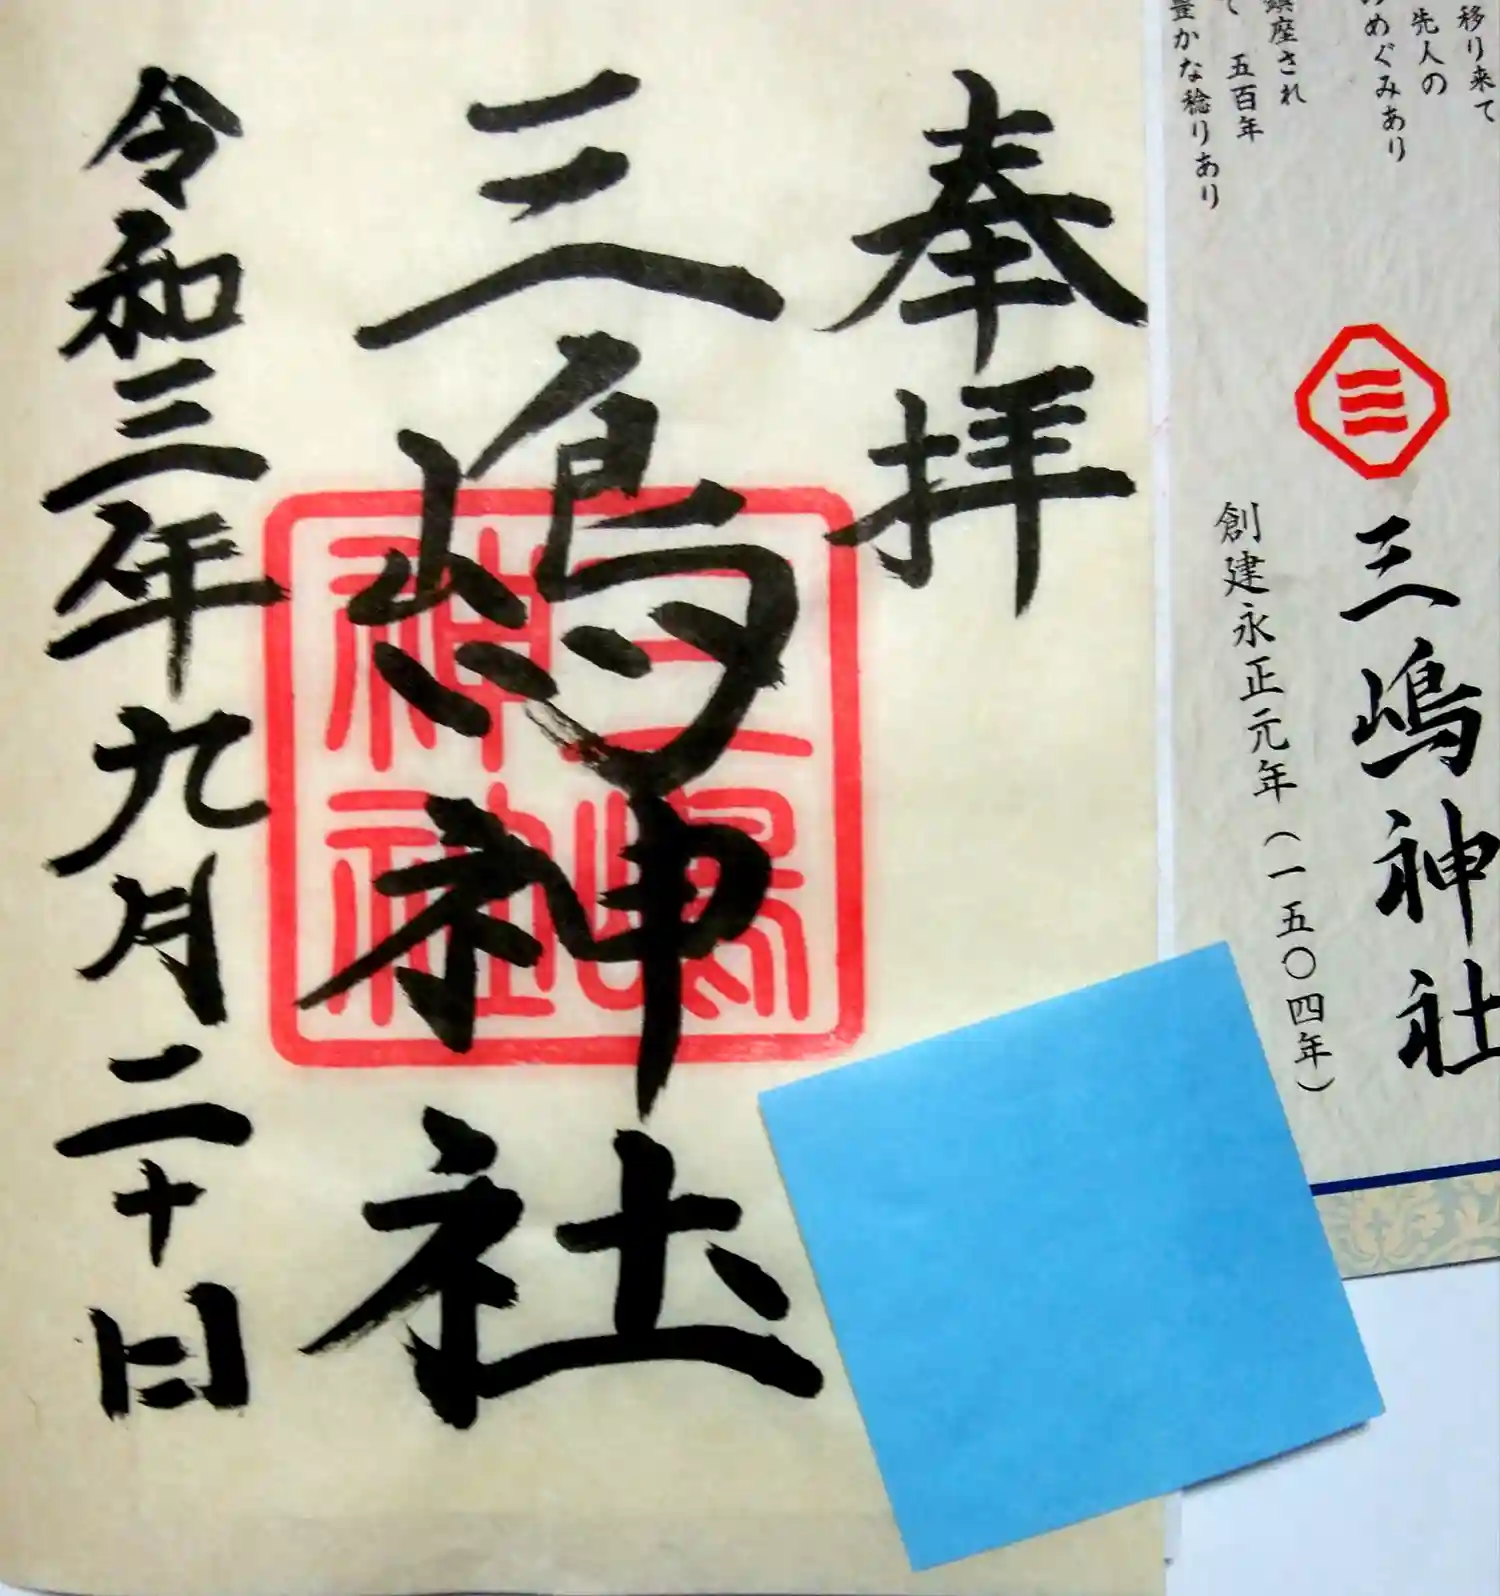 移り来て
先人の
めぐみあり
鎮座され
五百年
豊かな稔りあり
三嶋神社
創建永正元年(一五〇四年)
奉拝
三嶋神社
三嶋
神社
令和三年九月二十日